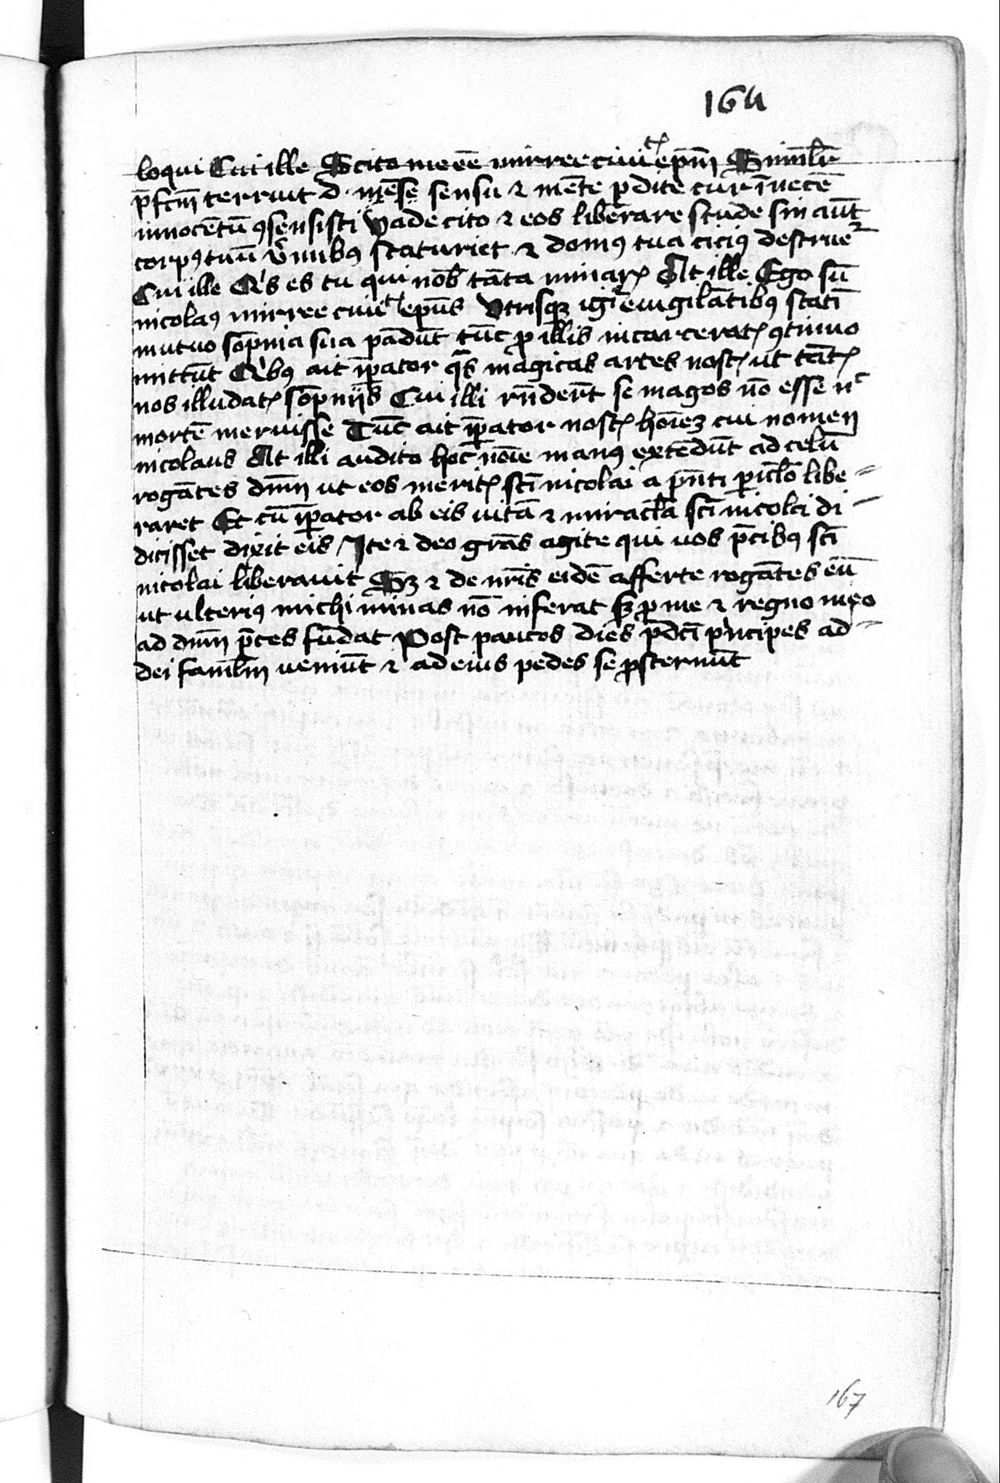 164
loqui Cui ille Scito me eē mirree ciuit̄ ep̄m Simil̄r
p̄fcm̄ terruit d. mēse sensu ⁊ mēte p̄dite cur ī necē
innocētū ꝯsensisti Vade cito ⁊ eos liberare stude sin aūt
corpꝰ tuū v̄mibꝰ scaturiet ⁊ domꝰ tua ciciꝰ destruet᷑
Cui ille Qͥs es tu qui nob̄ tāta minarꝭ At ille Ego sū
nicolaꝰ mirree ciuit̄ ep̄us Vtrisqꝫ igͥ euigilātibꝰ statī
mutuo sōpnia sua pādūt tūc ꝓ illis incarceratꝭ ꝯtinuo
mittūt Qͥbꝰ ait īpator qͣs magicas artes nostꝭ ut tātꝭ
nos illudatꝭ sōpnijs Cui illi rn̄derūt se magos nō esse nͨ
mortē meruisse Tūc ait īpator nostꝭ hoīeꝫ cui nomen
nicolaus At illi audito hoc noīe manꝰ extēdūt ad celū
rogātes dnm̄ ut eos meritꝭ sc̄i nicolai a pn̄ti pic̄lo libe⸗
raret Et cū īpator ab eis uitā ⁊ miracl̄a sc̄i nicolai di⸗
dicisset dixit eis Ite ⁊ deo grās agite qui uos p̄cibꝰ sc̄i
nicolai liberauit Sꝫ ⁊ de nr̄is eidē afferte rogātes eū
ut ulteriꝰ michi minas nō inferat sꝫ ꝓ me ⁊ regno meo
ad dnm̄ p̄ces fūdat Post paucos dies p̄dc̄i pͥncipes ad⸗
dei famlm̄ veniūt ⁊ ad eius pedes se ꝓsternūt
167